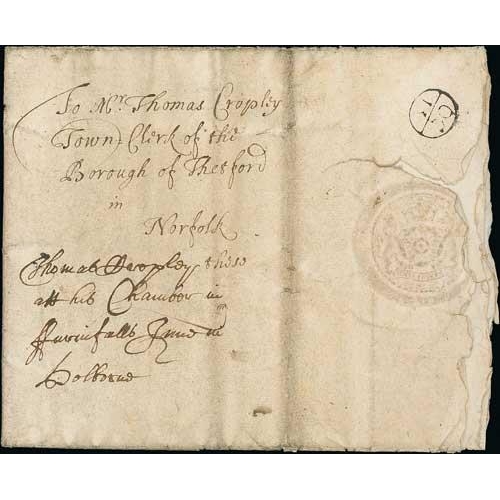 To Mr. Thomas Cropley
Town Clerk of the
Borough of Thetford
in
Norfolk
Thomas Cropley these
att his Chamber in
Furnifalls Inne in
Holborne